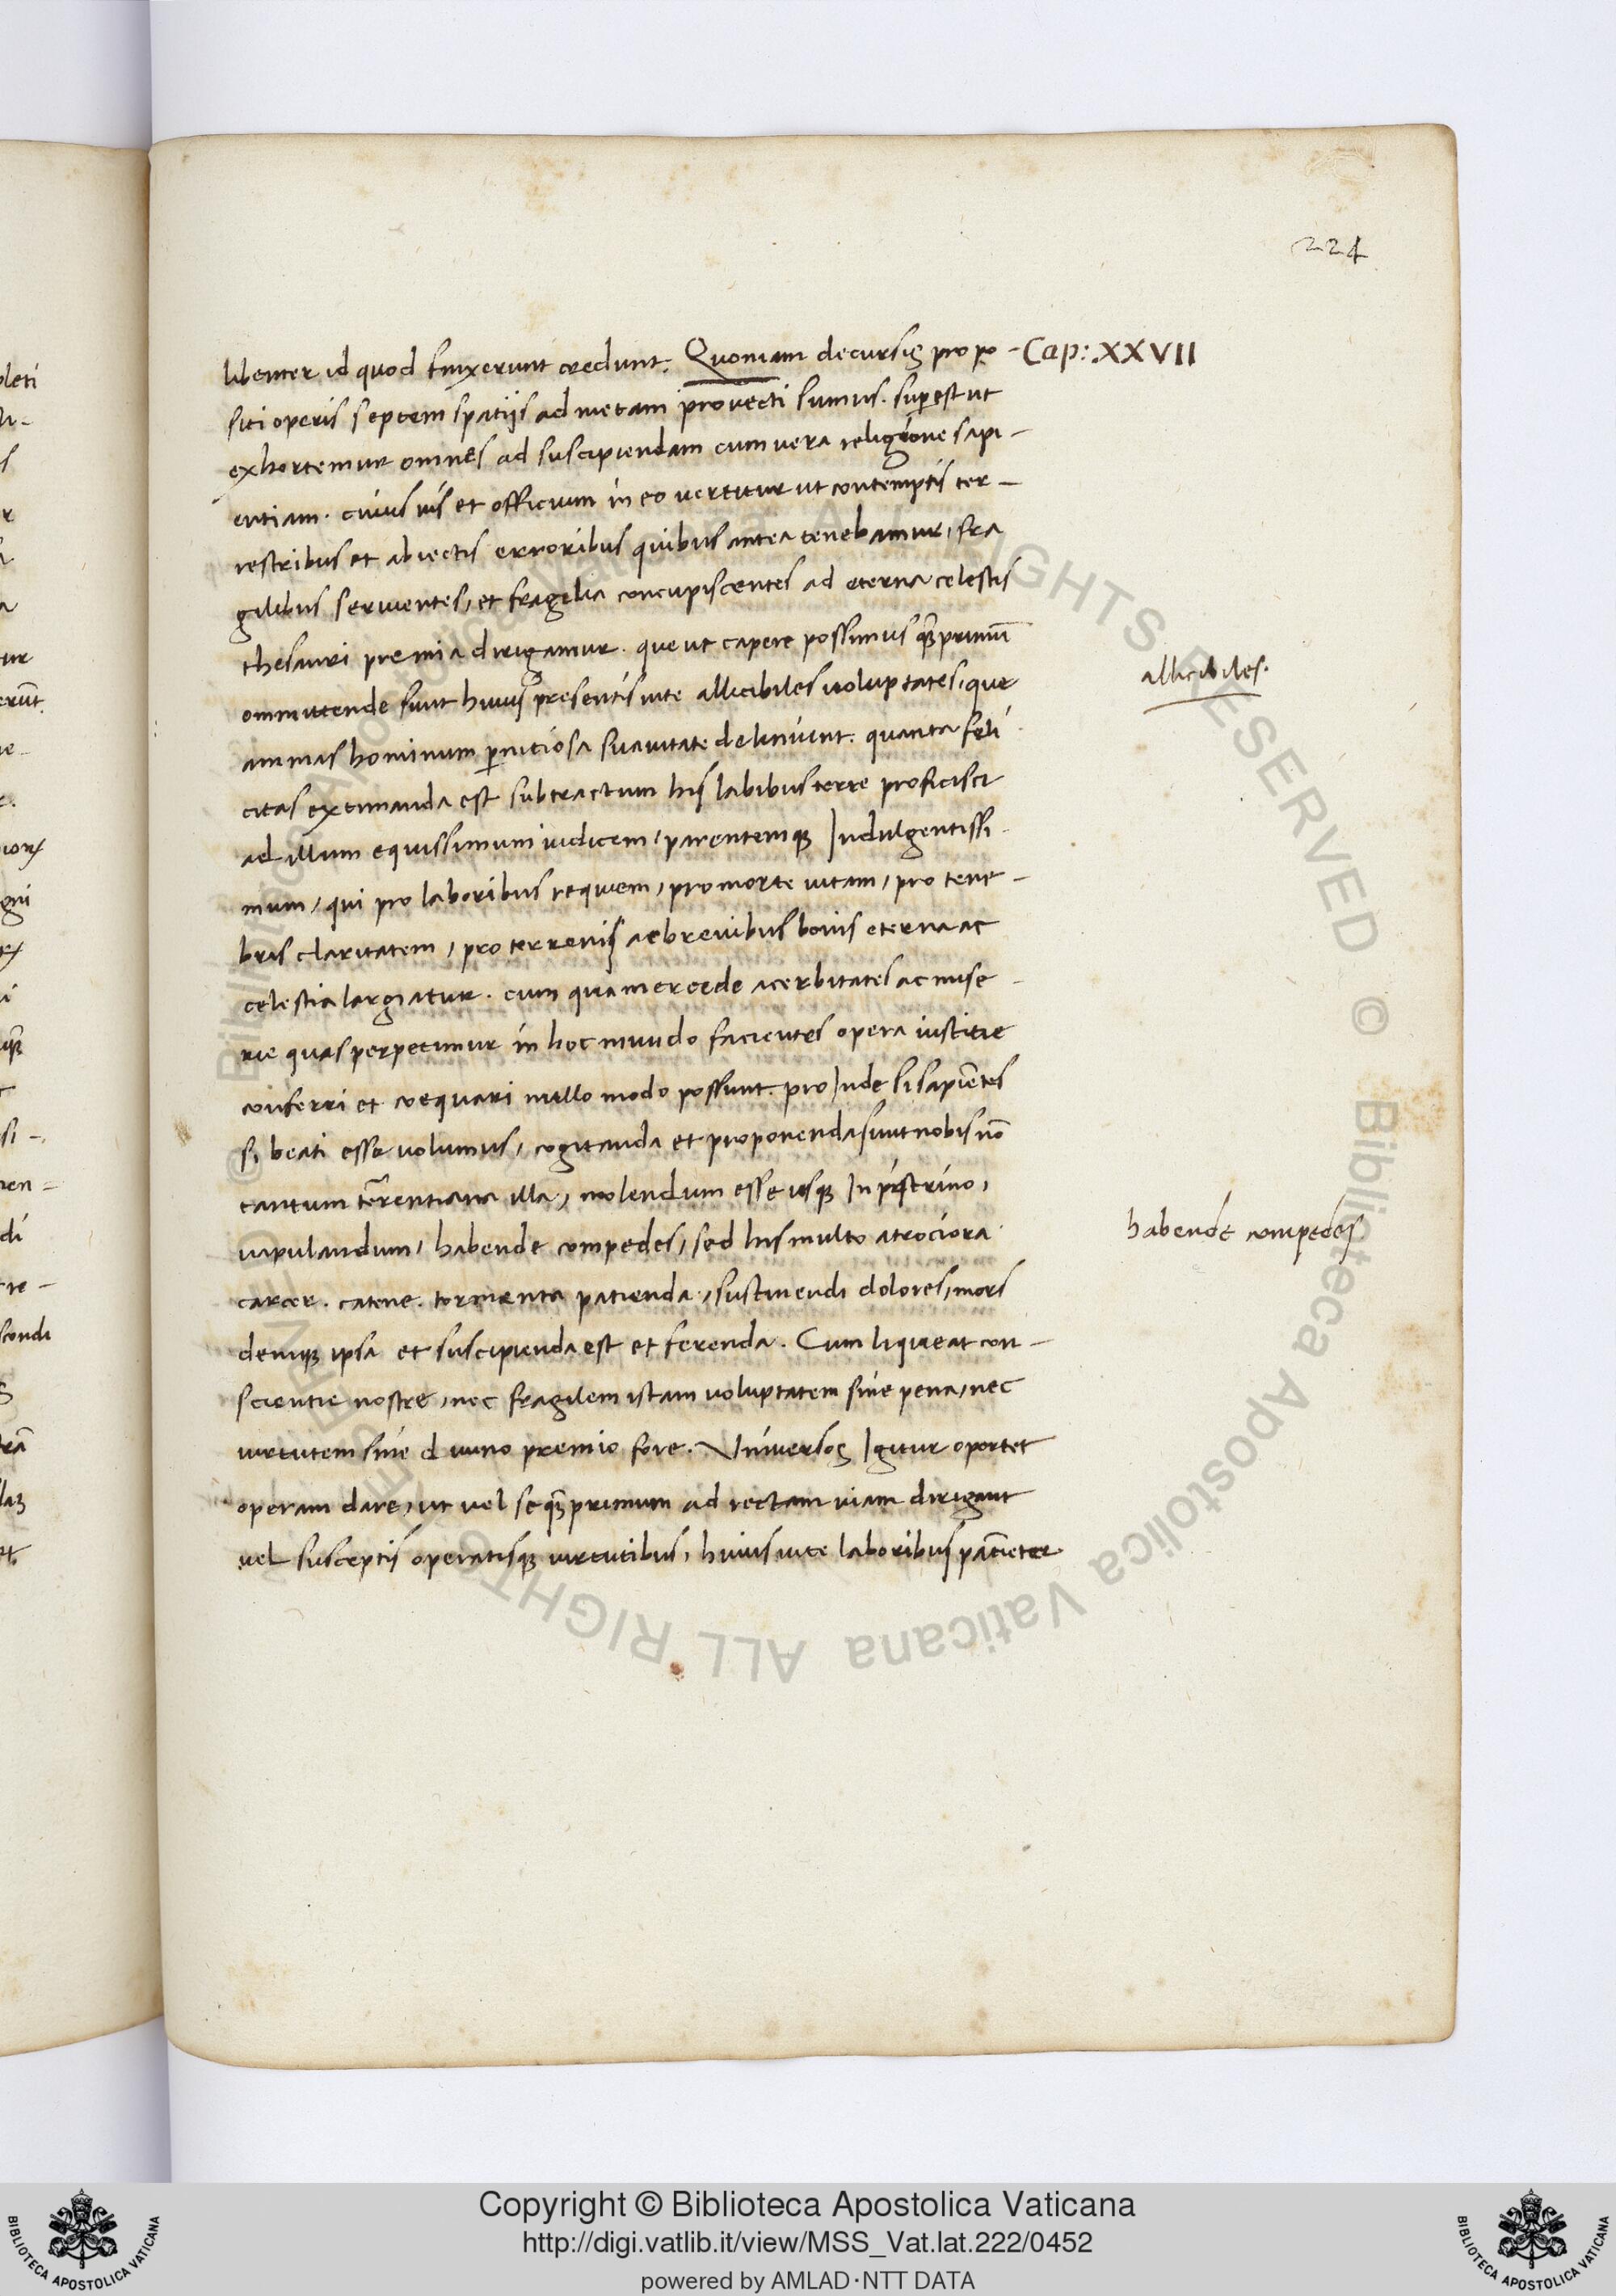 224
libenter id quod finxerunt credunt. Quoniam decursis propo - Cap: XXVII
siti operis septem spatijs ad metam provecti sumus. supest ut
exhortemur omnes ad suscipiendam cum vera religione sapi -
entiam. cuius vis et officium in eo vertitur ut contemptis ter -
restribus et abiectis erroribus quibus antea tenebamur, fra
gilibus servientes, et fragilia concupiscentes ad eterna celestis
thesauri premia dirigamur. que ut capere possimus q̃primũ
ommittende sunt huius presentis vite allicibiles voluptates, que
allicibiles.
animas hominum pniciosa suavitate deliniunt. quanta feli
citas extimanda est subtractum his labibus terre proficisci
ad illum equissimum iudicem, parentemq Indulgentissi
mum, qui pro laboribus requiem, pro morte vitam, pro tene -
bris claritatem, pro terrenis ac brevibus bonis eterna ac
celestia largiatur. cum qua mercede acerbitates ac mise -
rie quas perpetimur in hoc mundo facientes opera iustitie
conferri et coequari nullo modo possunt. proInde si sapiẽtes
si beati esse volumus, cogitanda et proponenda sunt nobis nõ
tantum terrentiana illa, molendum esse usq In pistrino,
vapulandum, habende compedes, sed his multo atrociora
habende compedes
carcer. catene. tormenta patienda, sustinendi dolores, mors
deniq ipsa et suscipienda est et ferenda. Cum liqueat con -
scientie nostre, nec fragilem istam voluptatem sine pena, nec
virtutem sine divino premio fore. Universos Igitur oportet
operam dare, ut vel se q̃primum ad rectam viam dirigant
vel susceptis operatisq virtutibus, huius vite laboribus paciẽter
Copyright © Biblioteca Apostolica Vaticana
http://digi.vatlib.it/view/MSS_Vat.lat.222/0452
powered by AMLAD·NTT DATA
BIBLIOTECA APOSTOLICA VATICANA
BIBLIOTECA APOSTOLICA VATICANA